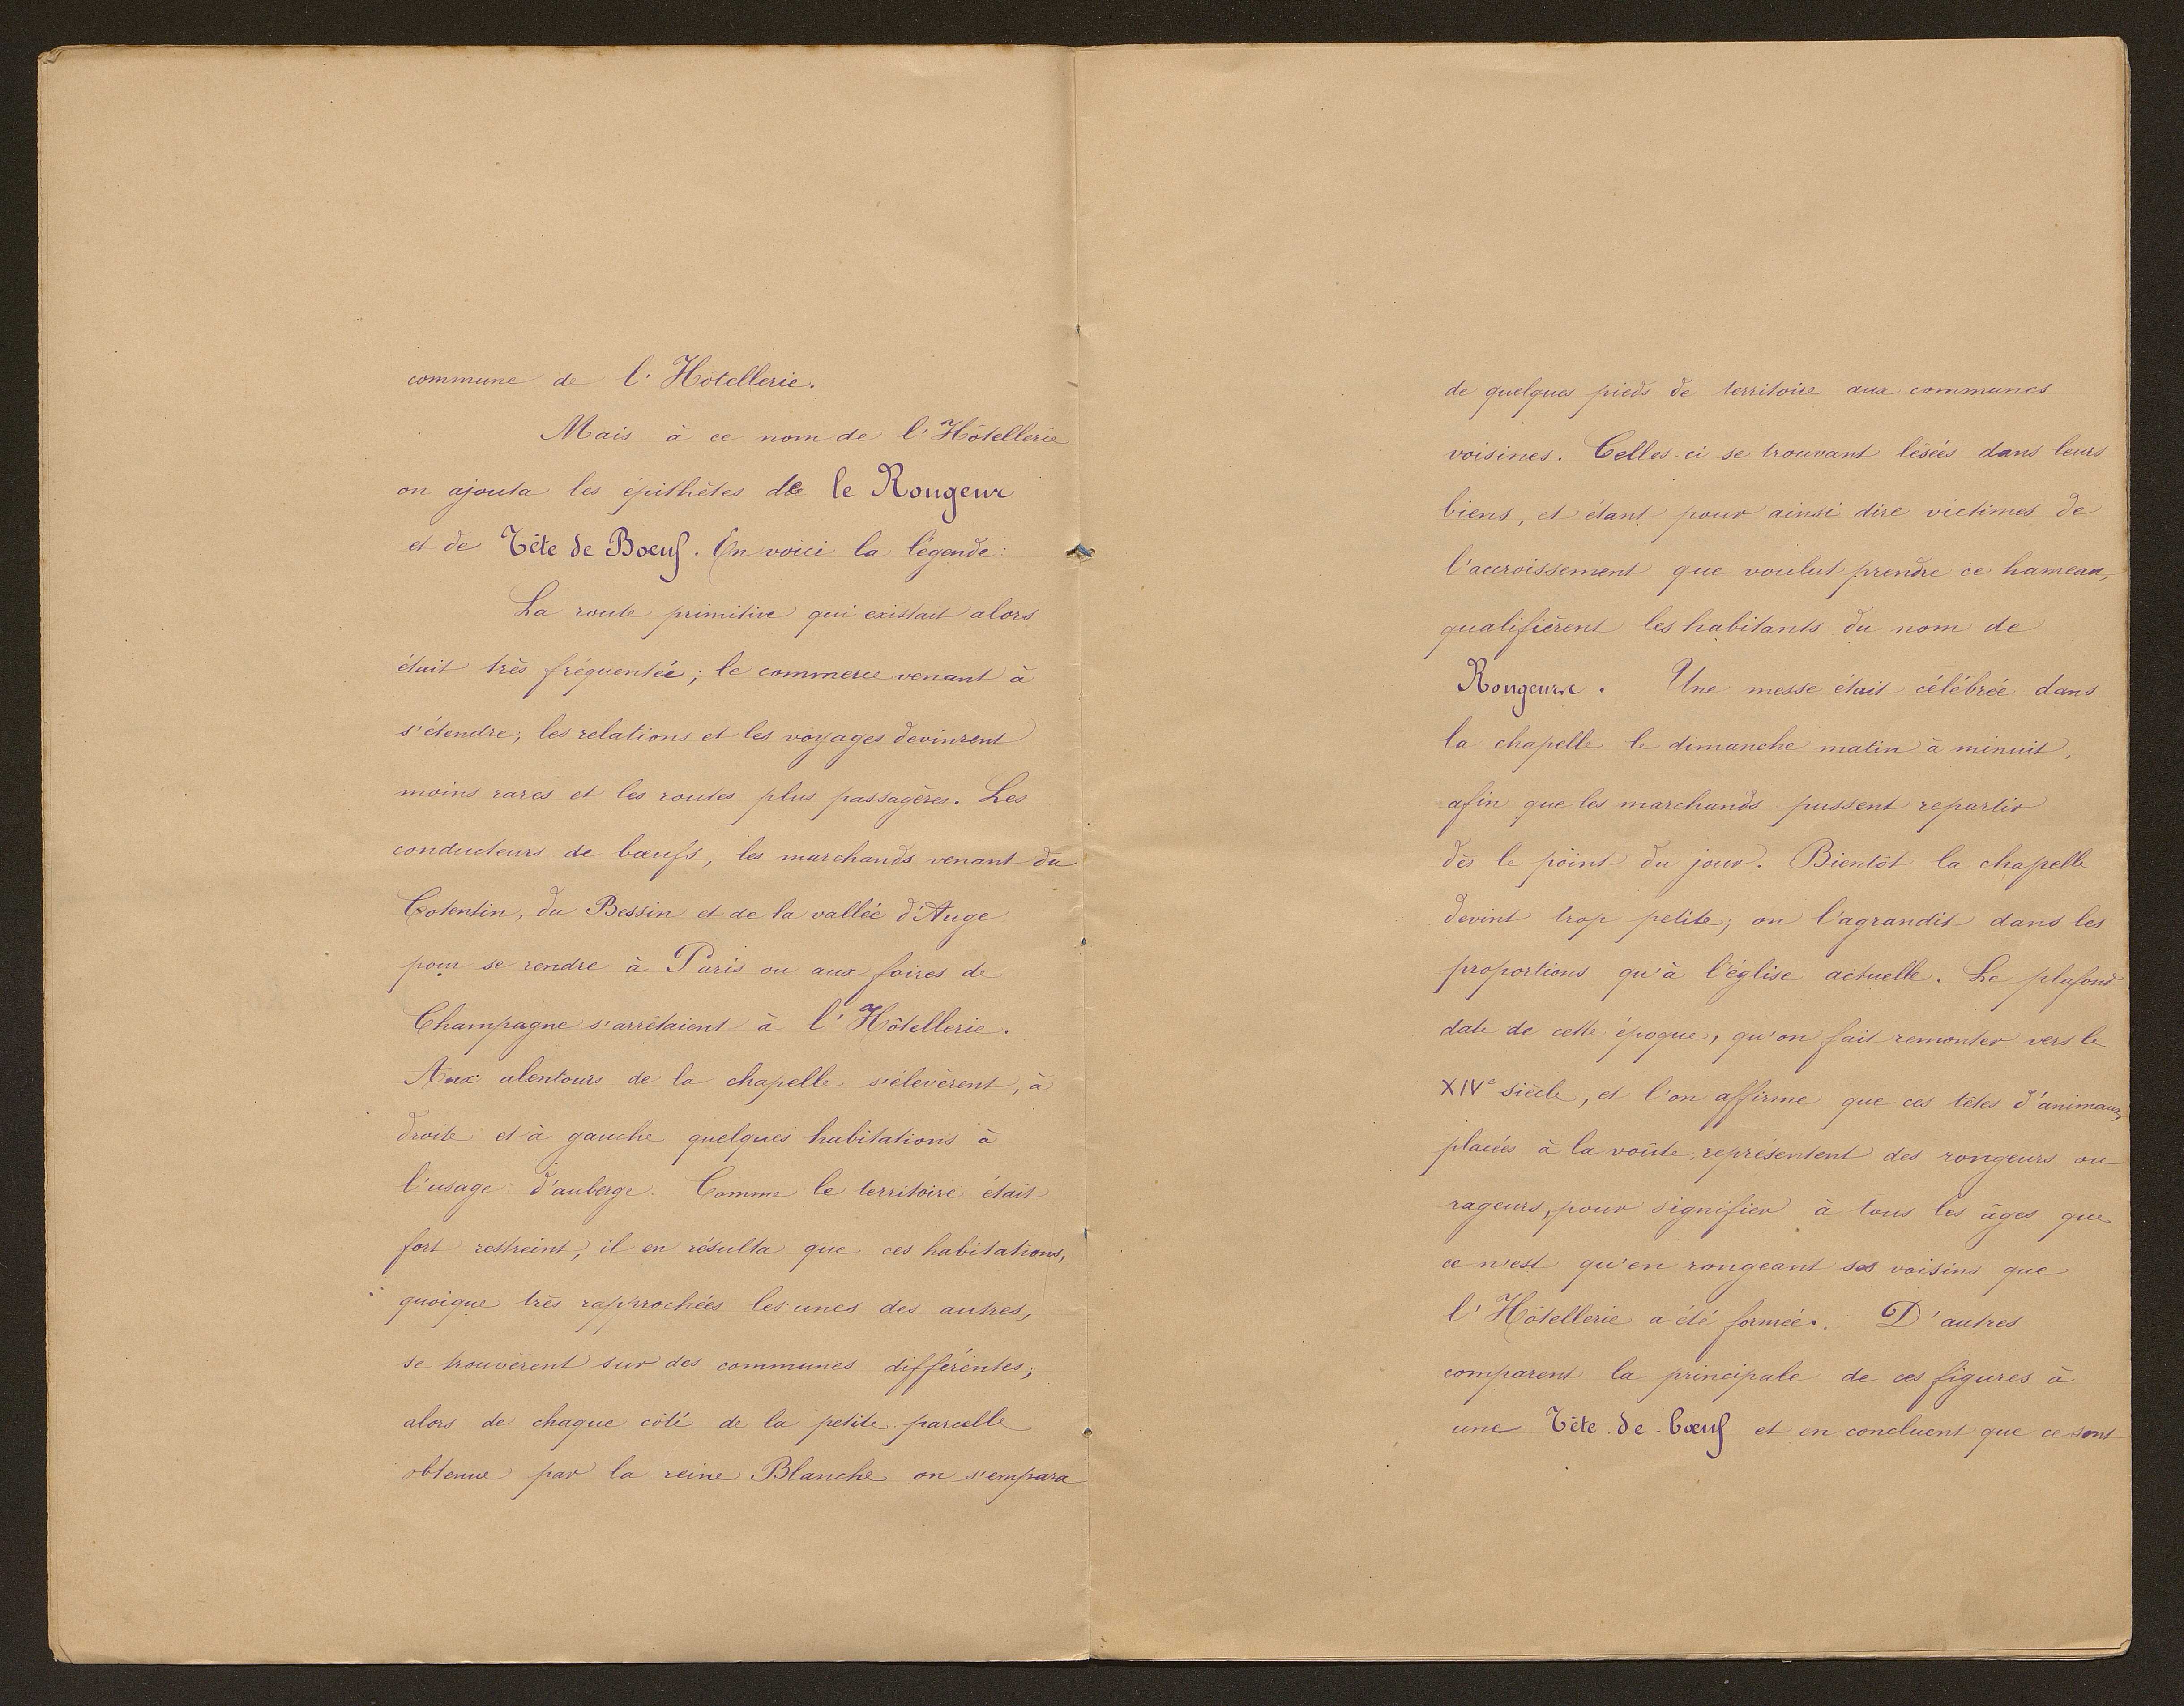 commune de l'Hôtellerie.
Mais à ce nom de l'Hôtellerie
on ajouta les épithètes de le Rongeur
et de Tête de Boeuf. En voici la légende:
La route primitive qui existait alors
était très fréquentée; le commerce venant à
s'étendre, les relations et les voyages devinrent
moins rares et les routes plus passagères. Les
conducteurs de bœufs, les marchands venant du
Cotentin, du Bessin et de la vallée d'Auge
pour se rendre à Paris ou aux foires de
Champagne s'arrêtaient à l'Hôtellerie.
Aux alentours de la chapelle s'élevèrent, à
droite et à gauche quelques habitations à
l'usage d'auberge. Comme le territoire était
fort restreint, il en résulta que ces habitations,
quoique très rapprochées les unes des autres,
se trouvèrent sur des communes différentes;
alors de chaque côté de la petite parcelle
obtenue par la reine Blanche on s'empara
de quelques pieds de territoire aux communes
voisines. Celles-ci se trouvant lésées dans leurs
biens, et étant pour ainsi dire victimes de
l'accroissement que voulut prendre ce hameau,
qualifièrent les habitants du nom de
Rongeurs. Une messe était célébrée dans
la chapelle le dimanche matin à minuit,
afin que les marchands pussent repartir
dès le point du jour. Bientôt la chapelle
devint trop petite; on l'agrandit dans les
proportions qu'à l'église actuelle. Le plafond
date de cette époque, qu'on fait remonter vers le
XIVe siècle, et l'on affirme que ces têtes d'animaux,
placées à la voûte, représentent des rongeurs ou
rageurs, pour signifier à tous les âges que
ce n'est qu'en rongeant ses voisins que
l'Hôtellerie a été formée. D'autres
comparent la principale de ces figures à
une Tête de bœuf et en concluent que ce sont